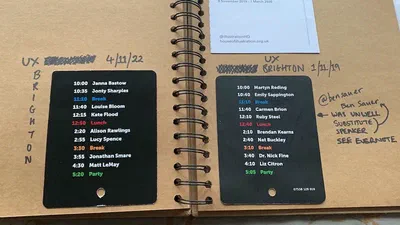 UX 4/11/22
BRIGHTON
10:00 Janna Bastow
10:35 Jonty Sharples
Break
11:40 Louise Bloom
12:15 Kate Flood
12:50 Lunch
2:20 Alison Rawlings
2:55 Lucy Spence
3:30 Break
3:55 Jonathan Smare
4:30 Matt LeMay
5:20 Party
UX
BRIGHTON 1/11/19
10:00 Martyn Reding
10:40 Emily Sappington
Break
11:40 Carmen Brion
12:10 Ruby Steel
12:40 Lunch
2:10 Brendan Kearns
2:40 Nat Buckley
3:10 Break
3:40 Dr. Nick Fine
4:10 Liz Citron
5:05 Party
@bensauer
Ben Sauer
WAS UNWELL
SUBSTITUTE
SPEAKER
SEE EVERNOTE